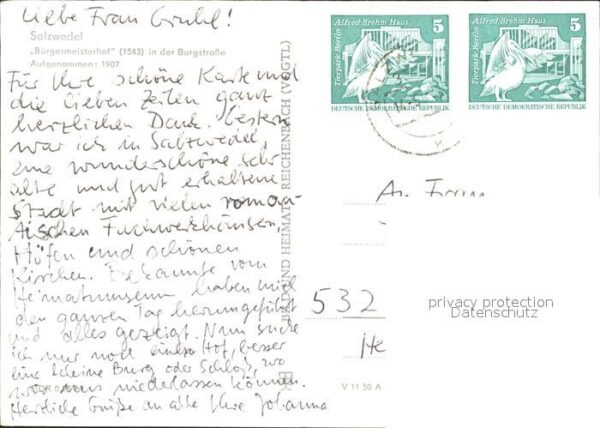 Liebe Frau Gruhl!
Salzwedel
„Bürgermeisterhof" (1543) in der Burgstraße
Aufgenommen: 1907
Für Ihre schöne Karte und
die lieben Zeilen ganz
herzlichen Dank. Gestern
war ich in Salzwedel,
eine wunderschöne sehr
alte und gut erhaltene
Stadt mit vielen roman-
tischen Fachwerkhäusern,
Höfen und schönen
Kirchen. Bekannte vom
Heimatmuseum haben mich
den ganzen Tag herumgeführt
und alles gezeigt. Nun suche
ich nur noch einen Hof, besser
eine kleine Burg oder Schloß, wo
wir uns niederlassen können.
Herzliche Grüße an alle Ihre Johanna
BILD UND HEIMAT REICHENBACH (VOGTL)
V 11 50 A
Tierpark Berlin
Alfred-Brehm-Haus
5
DEUTSCHE DEMOKRATISCHE REPUBLIK
Tierpark Berlin
Alfred-Brehm-Haus
5
DEUTSCHE DEMOKRATISCHE REPUBLIK
An Frau
532
He
privacy protection
Datenschutz